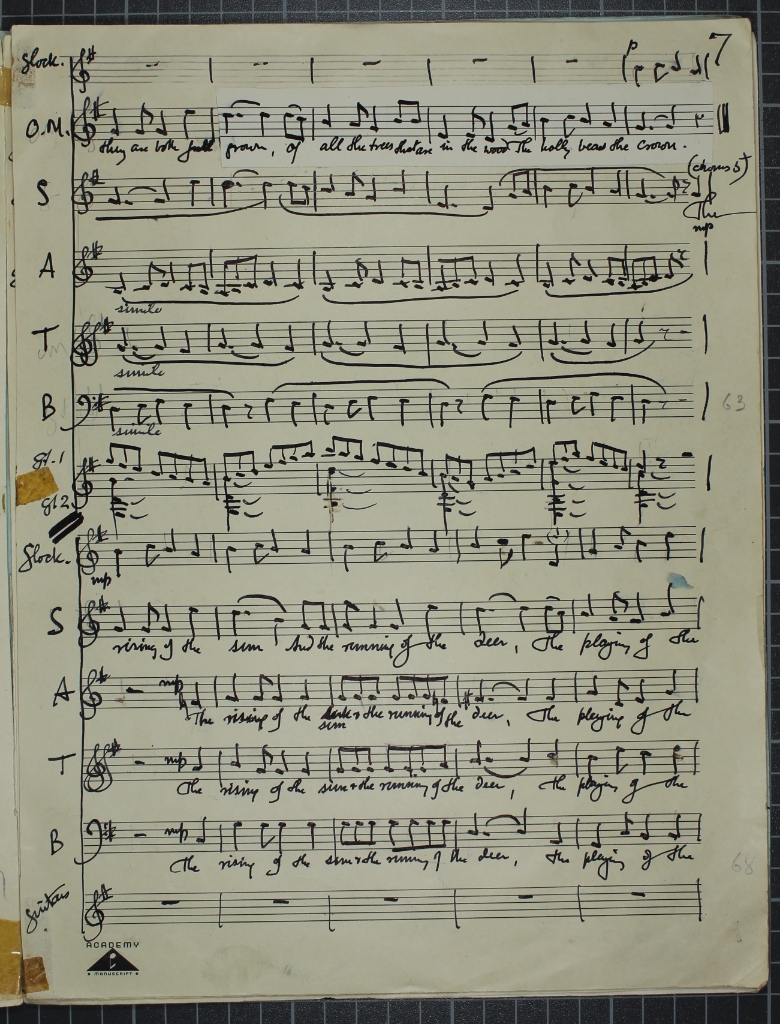 7
Glock.
p
O.M.
they are both full grown, of all the trees that are in the wood The holly bears the crown.
(chorus 5)
S
The
mp
A
simile
T
simile
B
simile
63
gt.1
gt2.
Glock.
mp
S
rising of the sun And the running of the deer, The playing of the
A
mp
The rising of the sun & the running of the deer, The playing of the
T
mp
The rising of the sun & the running of the deer, the playing of the
B
mp
The rising of the sun & the running of the deer, the playing of the
68
Guitars
ACADEMY
MANUSCRIPT